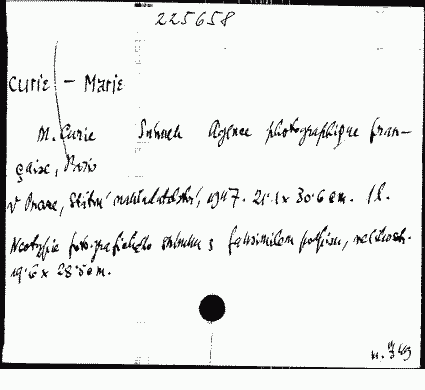 225658
Curie - Marie
M. Curie Snímek Agence photographique fran-
çaise, Paris
V Praze, Státní nakladatelství, 1947. 21·1 x 30·6 cm. 1 l.
Neotypie fotografického snímku s faksimilem podpisu, velikosti
19·6 x 28·5 cm.